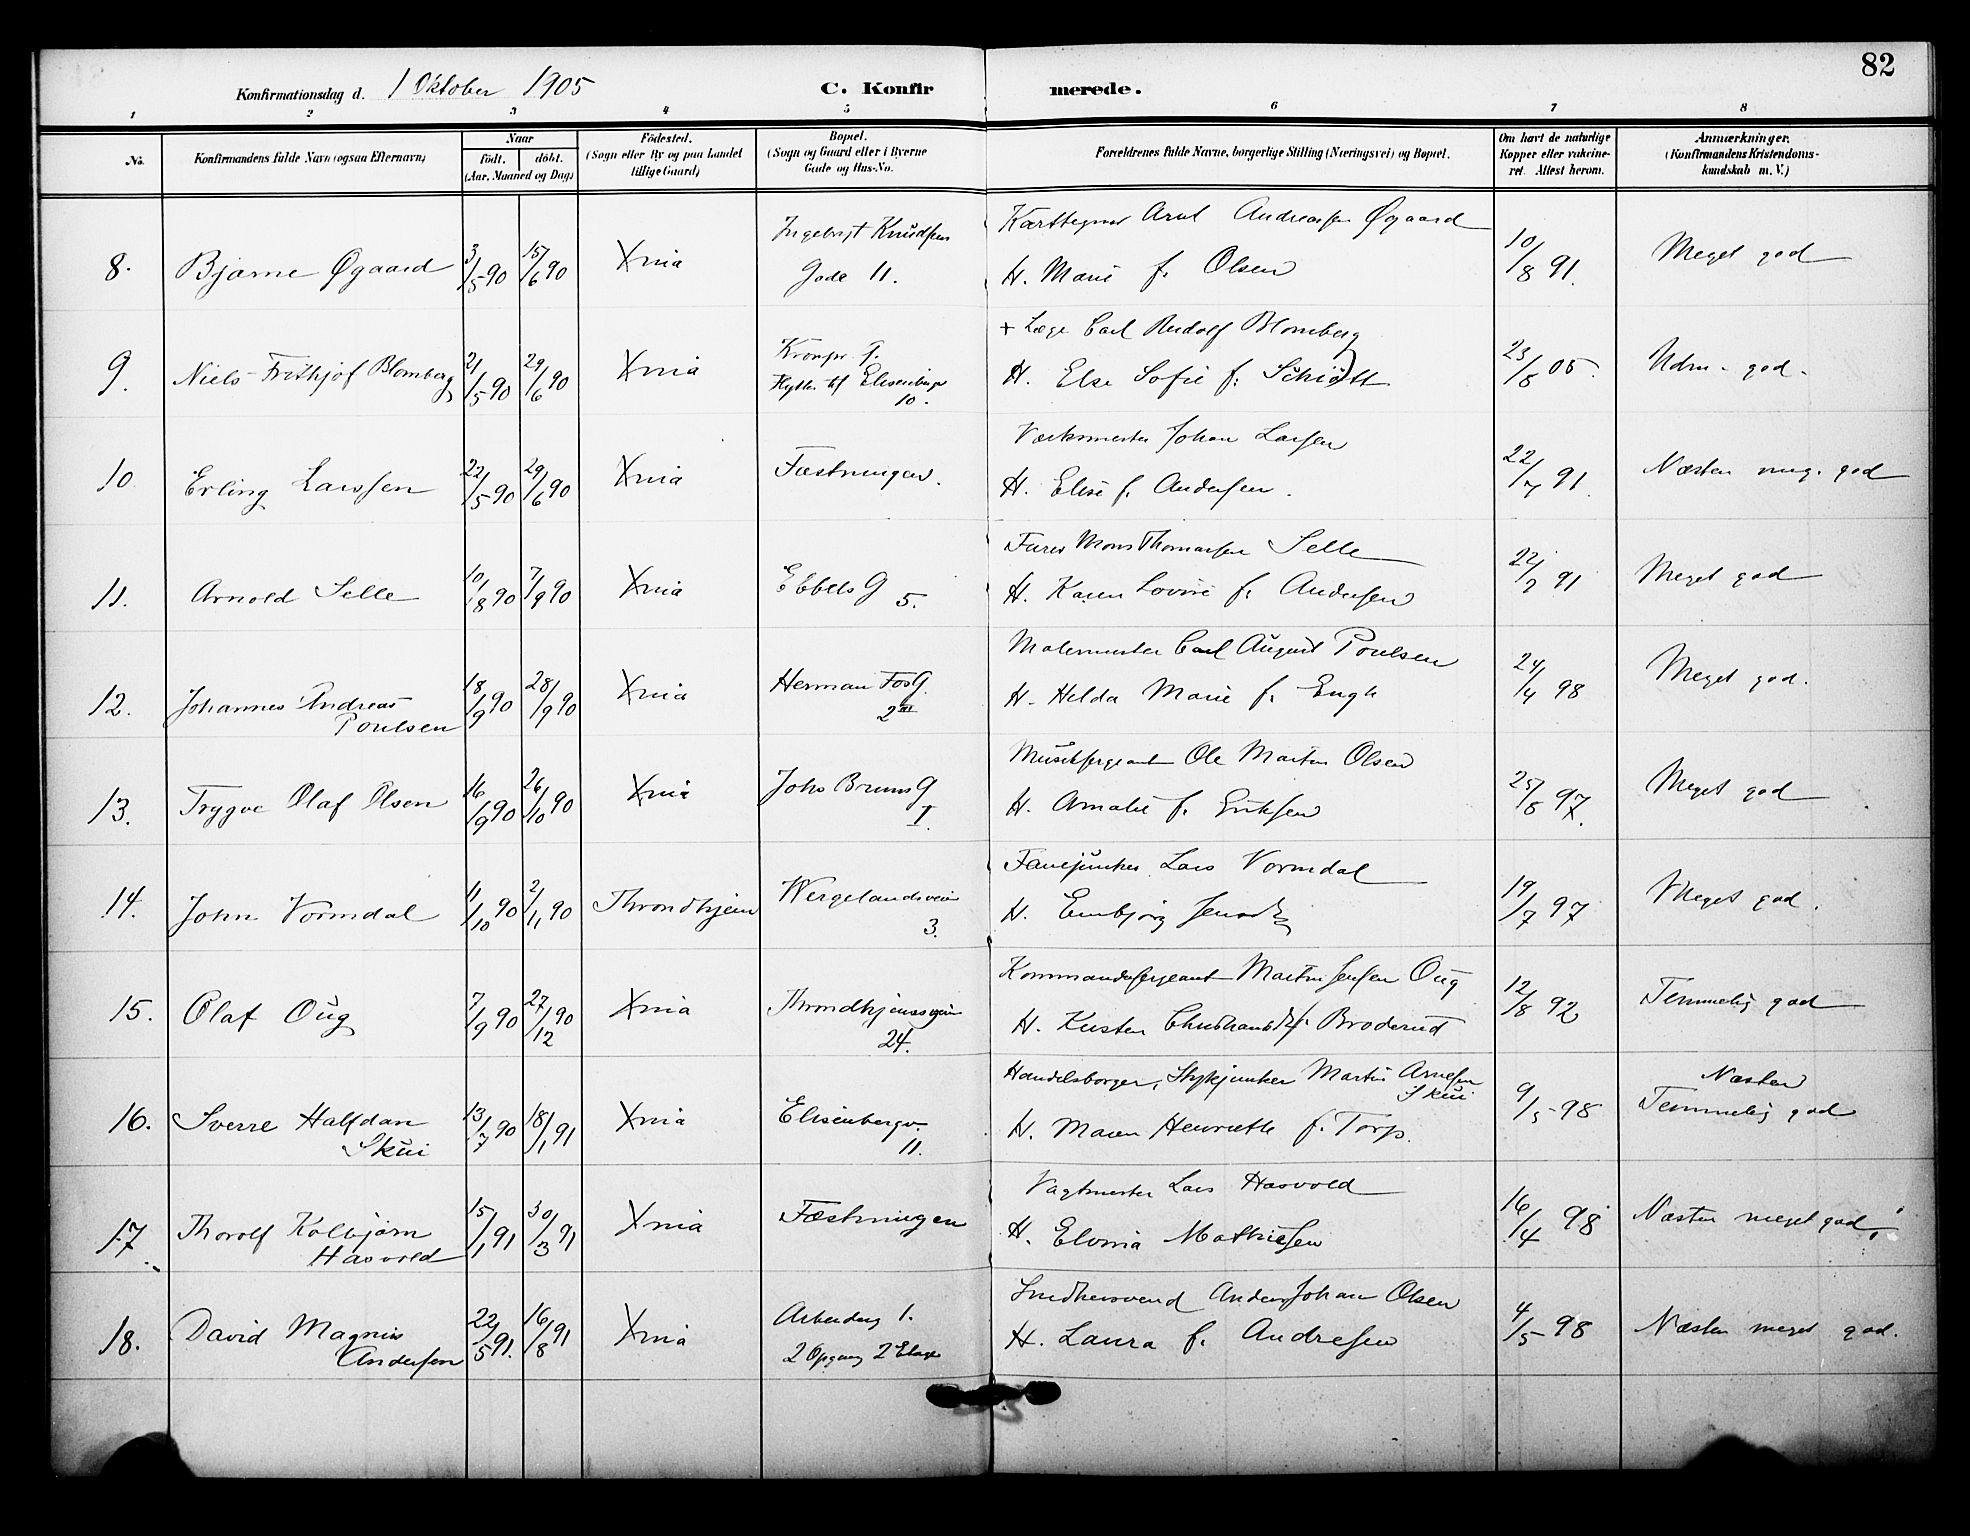 82
Konfirmationsdag d. 1 Oktober 1905 C. Konfirmerede.
1 2 3 4 5 6 7 8
No. Konfirmandens fulde Navn (ogsaa Efternavn) Naar födt. döbt. (Aar, Maaned og Dag) Födested. (Sogn eller By og paa Landet tillige Gaard) Bopæl. (Sogn og Gaard eller i Byerne Gade og Hus-No. Forældrenes fulde Navne, borgerlige Stilling (Næringsvei) og Bopæl. Om havt de naturlige Kopper eller vakcineret. Attest herom. Anmærkninger. (Konfirmandens Kristendomskundskab m. V.)
8. Bjarne Øgaard 3/5 90 15/6 90 Xnia Ingebrigt Knudsens Gade 11. Karttegner Arnt Andreassen Øgaard
H. Marie f. Olsen 10/8 91. Meget god
9. Niels Frithjof Blomberg 21/5 90 29/6 90 Xnia Elisenbergv 10. + Læge Carl Rudolf Blomberg
H. Else Sofie f. Schiøtt 23/8 05. Udm. god.
10 Erling Larssen 22/5 90 29/6 90 Xnia Fæstningen. Værksmester Johan Larsen
H. Elise f. Andersen. 22/7 91. Næsten meg. god
11. Arnold Selle 10/8 90 7/9 90 Xnia Ebbels G 5. Furer Mons Thomassen Selle
H. Karen Lovise f. Andersen 22/2 91 Meget god
12. Johannes Andreas Poulsen 18/9 90 28/9 90 Xnia Herman Fos G. 2 III Malermester Carl August Poulsen
H. Helda Marie f. Engh 24/4 98 Meget god.
13. Trygve Olaf Olsen 16/9 90 26/10 90 Xnia Johs Bruns G I. Musiksergeant Ole Martin Olsen
H. Amalie f. Eriksen 25/8 97. Meget god
14. John Vormdal 11/10 90 2/11 90 Throndhjem Wergelandsveien 3. Fanejunker Lars Vormdal
H. Embjørg 19/7 97 Meget god.
15. Olaf Oug 7/9 90 27/12 90 Xnia Throndhjemsveien 24. Kommandersergeant Martin Jensen Oug
H. Kirsten Christiansd f. Broderud 12/8 92 Temmelig god
16. Sverre Halfdan Skui 13/7 90 18/1 91 Xnia Elisenbergv. 11. Handelsborger, Stykjunker Martin Arnesen Skui
H. Maren Henriette f. Torp. 9/5 98 Næsten Temmelig god
17. Thorolf Kolbjørn Hasvold 15/1 91 30/3 91 Xnia Fæstningen Vagtmester Lars Hasvold
H. Elvina Mathiesen 16/4 98 Næsten meget god.
18. David Magnus Andersen 22/5 91. 16/8 91 Xnia Arbeiderg 1. 2 Opgang 2 Etage Smedkersvend Anders Johan Olsen
H. Laura f. Andresen 4/5 98 Næsten meget god.